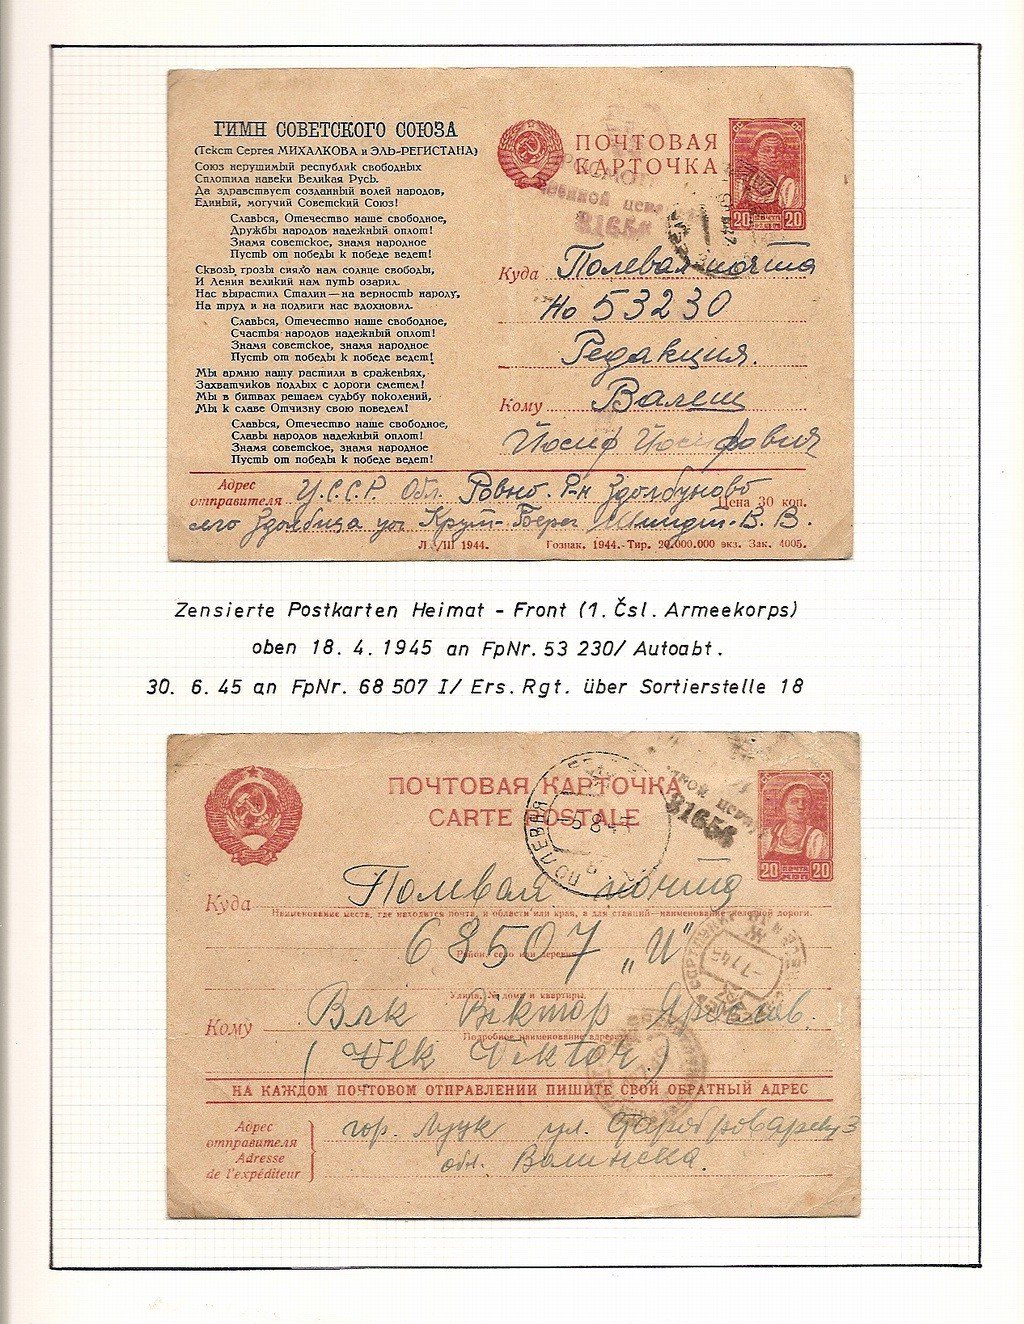 ГИМН СОВЕТСКОГО СОЮЗА
(Текст Сергея МИХАЛКОВА и ЭЛЬ-РЕГИСТАНА)
Союз нерушимый республик свободных
Сплотила навеки Великая Русь.
Да здравствует созданный волей народов,
Единый, могучий Советский Союз!
Славься, Отечество наше свободное,
Дружбы народов надежный оплот!
Знамя советское, знамя народное
Пусть от победы к победе ведет!
Сквозь грозы сияло нам солнце свободы,
И Ленин великий нам путь озарил.
Нас вырастил Сталин — на верность народу,
На труд и на подвиги нас вдохновил.
Славься, Отечество наше свободное,
Счастья народов надежный оплот!
Знамя советское, знамя народное
Пусть от победы к победе ведет!
Мы армию нашу растили в сраженьях,
Захватчиков подлых с дороги сметем!
Мы в битвах решаем судьбу поколений,
Мы к славе Отчизну свою поведем!
Славься, Отечество наше свободное,
Славы народов надежный оплот!
Знамя советское, знамя народное
Пусть от победы к победе ведет!
ПОЧТОВАЯ
КАРТОЧКА
20 ПОЧТА 20
31656
Куда Полевая почта
No 53230
Редакция.
Кому Валеш
Йосиф Йосифович
Адрес
отправителя У.С.С.Р. Обл. Ровно. Р-н Здолбуново
Цена 30 коп.
село Здолбица ул Крут-Берег Шмидт-В.В.
1944. Гознак. 1944.-Тир. 20.000.000 экз. Зак. 4005.
Zensierte Postkarten Heimat - Front (1. Čsl. Armeekorps)
oben 18. 4. 1945 an FpNr. 53 230/ Autoabt.
30. 6. 45 an FpNr. 68 507 I/ Ers. Rgt. über Sortierstelle 18
ПОЧТОВАЯ КАРТОЧКА
CARTE POSTALE
ПОЛЕВАЯ
31656
20 ПОЧТА 20
Куда Полевая почта
Наименование места, где находится почта, и области или края, а для станций—наименование железной дороги.
68507 „И"
Район, село или деревня
Улица, № дома и квартиры.
Кому Влк Віктор Ярослав.
Подробное наименование адресата
(Vlk Viktor)
НА КАЖДОМ ПОЧТОВОМ ОТПРАВЛЕНИИ ПИШИТЕ СВОЙ ОБРАТНЫЙ АДРЕС
Адрес
отправителя
Adresse
de l'expéditeur
гор. Луцк ул. 3
обл. Волинска.